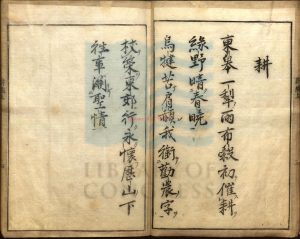 耕
東皋一犁雨布穀初催耕
綠野暗春曉
烏犍苦肩赬我銜勸農字
杖策東郊行永懷歷山下
往事關聖情
LIBRARY OF
CONGRESS